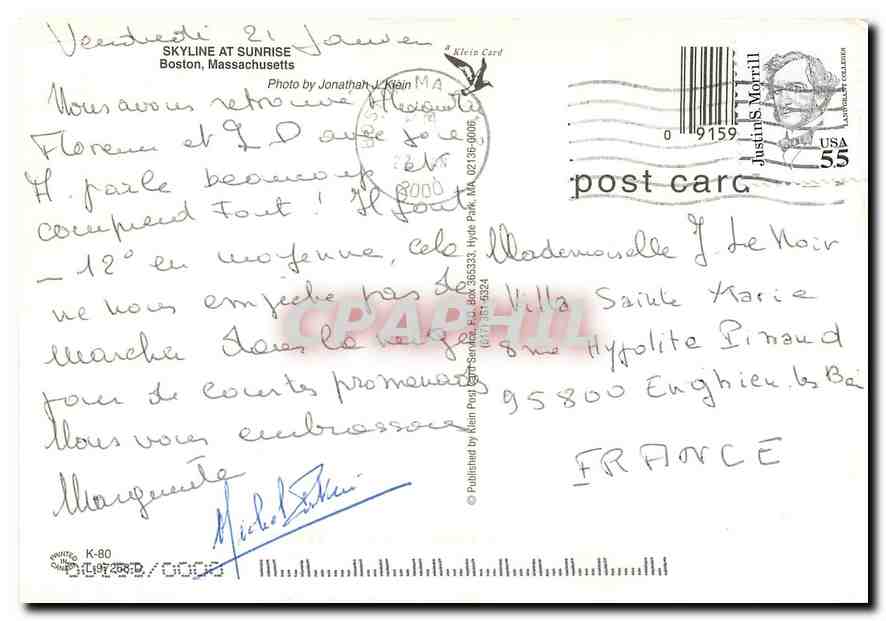 Vendredi 21 Janvier
SKYLINE AT SUNRISE
Boston, Massachusetts
Photo by Jonathan J. Klein
a Klein Card
Nous avons retrouvé
Florence et J. D avec joie
Il parle beaucoup et
comprend Tout ! Il fait
- 12° en moyenne, cela
ne nous empêche pas de
marcher dans la neige
pour de courtes promenades
Nous vous embrassons
Marguerite
Michel
PRINTED IN CANADA
K-80
L-97258-D
© Published by Klein Post Card Service, P.O. Box 365333, Hyde Park, MA. 02136-0006
(617) 361-6324
MA
8000
0 9159
Justin S. Morrill
LAND GRANT COLLEGES
USA
55
post card
Mademoiselle J. Le Noir
Villa Sainte Marie
8 rue Hypolite Pinaud
95800 Enghien les Bai
FRANCE
CPAPHIL